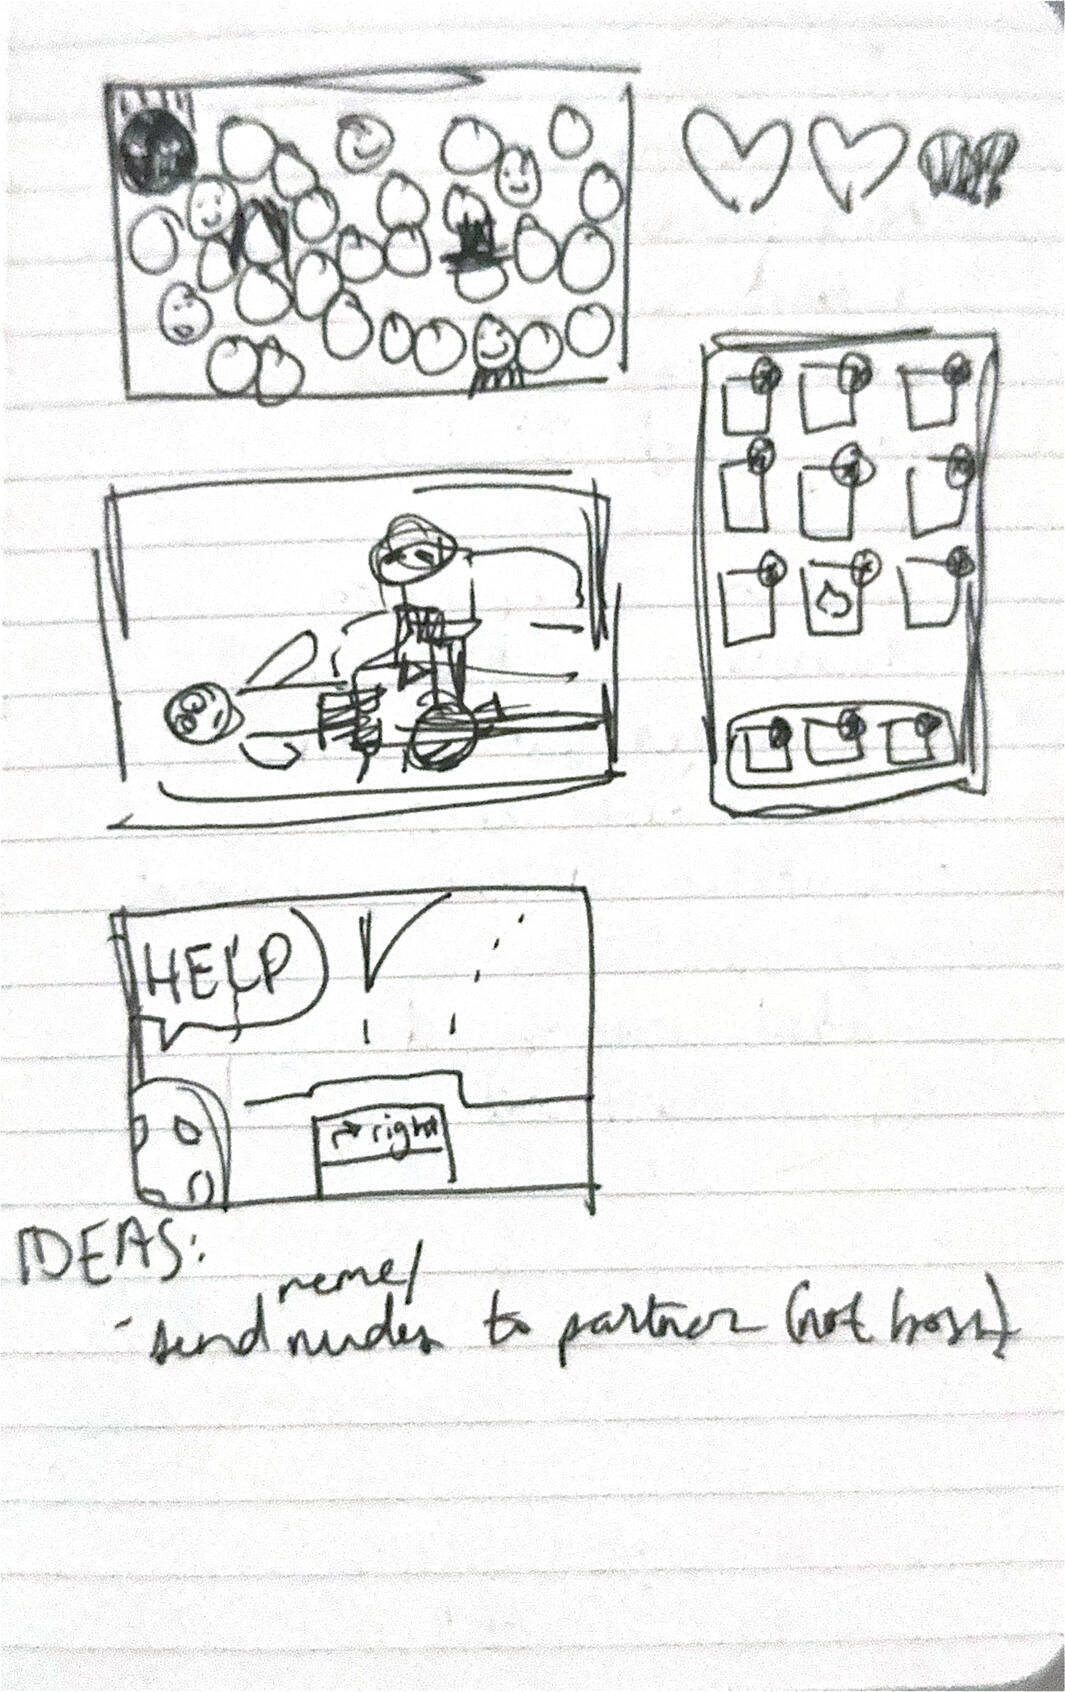 HELP
right
IDEAS:
meme/
- send nudes to partner (not boss)